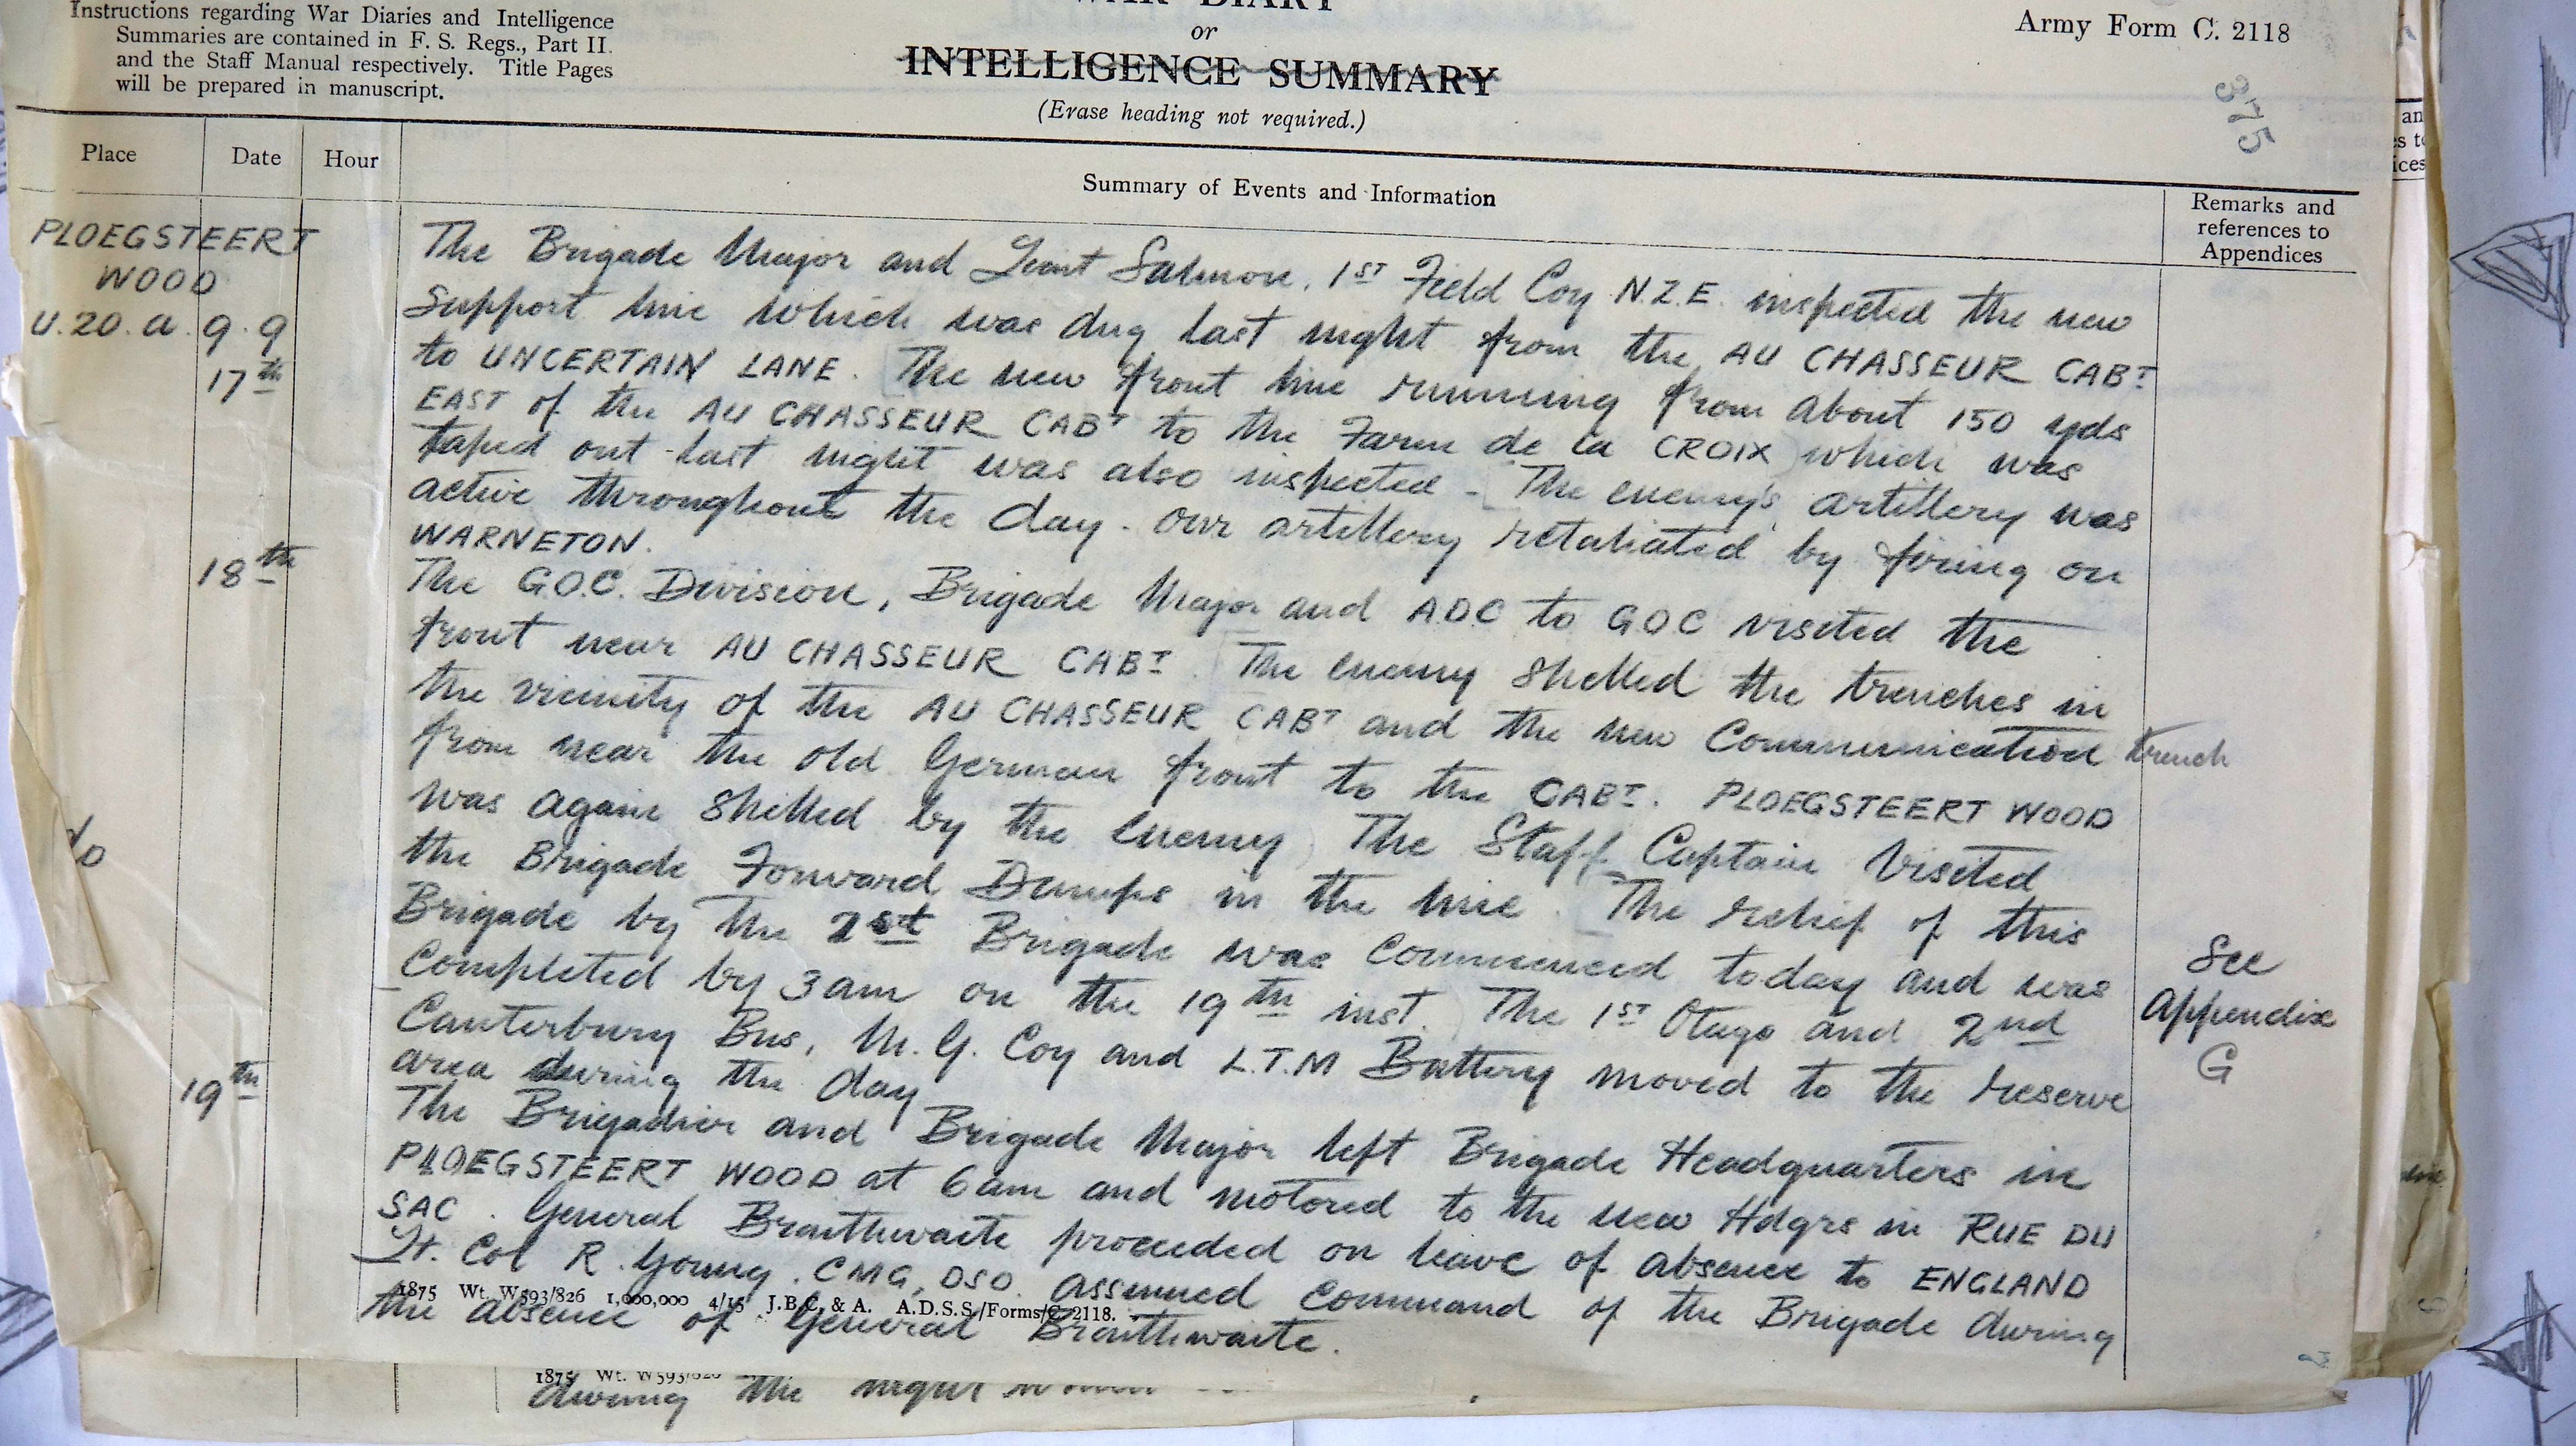 Instructions regarding War Diaries and Intelligence
Summaries are contained in F. S. Regs., Part II.
and the Staff Manual respectively. Title Pages
will be prepared in manuscript.
WAR DIARY
or
INTELLIGENCE SUMMARY
(Erase heading not required.)
Army Form C. 2118
375
Place
Date
Hour
Summary of Events and Information
Remarks and
references to
Appendices
PLOEGSTEERT
WOOD
U.20.a.9.9
17th
The Brigade Major and Lieut Salmon, 1ST Field Coy N.Z.E. inspected the new
support line which was dug last night from the AU CHASSEUR CABT
to UNCERTAIN LANE. The new front line running from about 150 yds
EAST of the AU CHASSEUR CABT to the Farm de la CROIX which was
taped out last night was also inspected - The enemy's artillery was
active throughout the day. Our artillery retaliated by firing on
WARNETON.
18th
The G.O.C. Division, Brigade Major and ADC to GOC visited the
front near AU CHASSEUR CABT. The enemy shelled the trenches in
the vicinity of the AU CHASSEUR CABT and the new Communication trench
from near the old German front to the CABT. PLOEGSTEERT WOOD
was again shelled by the enemy. The Staff Captain visited
do
the Brigade Forward Dumps in the line. The relief of this
Brigade by the Brigade was commenced today and was
completed by 3am on the 19th inst. The 1ST Otago and 2nd
Canterbury Bns, M.G. Coy and L.T.M Battery moved to the reserve
area during the day
See
Appendix
G
19th
The Brigadier and Brigade Major left Brigade Headquarters in
PLOEGSTEERT WOOD at 6am and motored to the new Hdqrs in RUE DU
SAC. General Braithwaite proceeded on leave of absence to ENGLAND
Lt. Col R. Young. CMG, DSO. assumed command of the Brigade during
the absence of General Braithwaite.
1875 Wt. W593/826 1,000,000 4/15 J.B.C. & A. A.D.S.S./Forms/C. 2118.
1875 Wt. W593/826
during the night